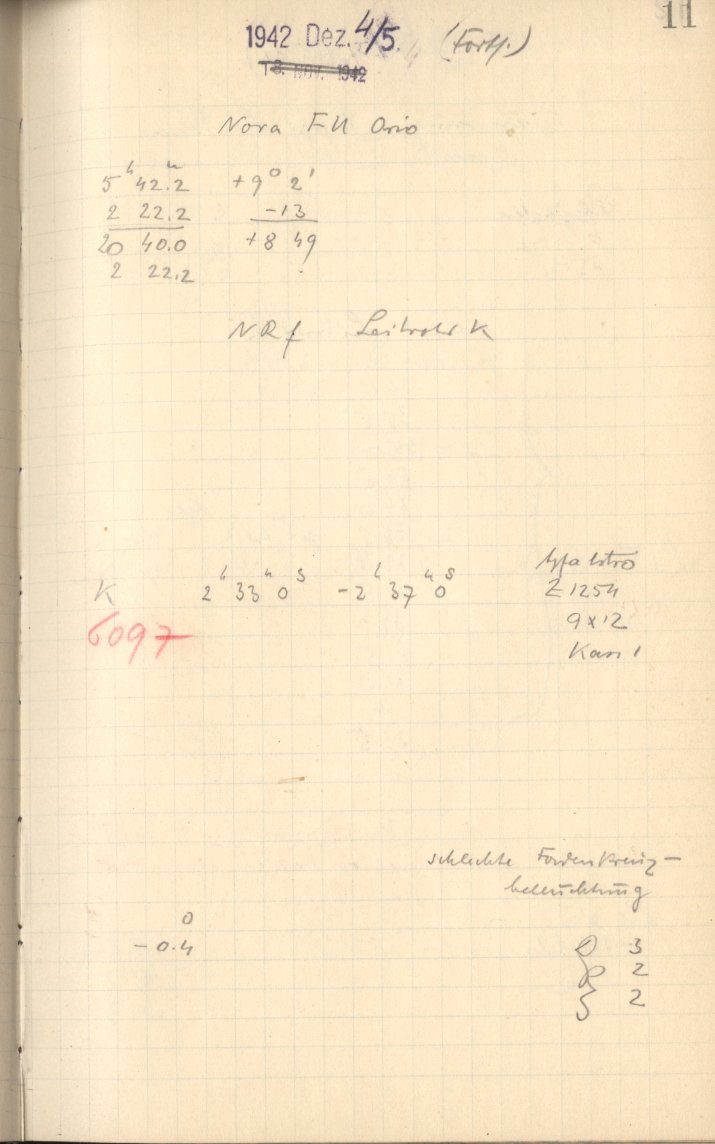 11
1942 Dez. 4/5. (Forts.)
13. NOV. 1942
Nova FU Orio
5h 42.2m +9° 2'
2 22.2 -13
20 40.0 +8 49
2 22.2
NRf Leitrohr K
K 2h 33m 0s -2h 37m 0s
Agfa Astro
Z 1254
6097
9x12
Kass 1
schlechte Fadenkreuz-
beleuchtung
0
-0.4
3
2
2